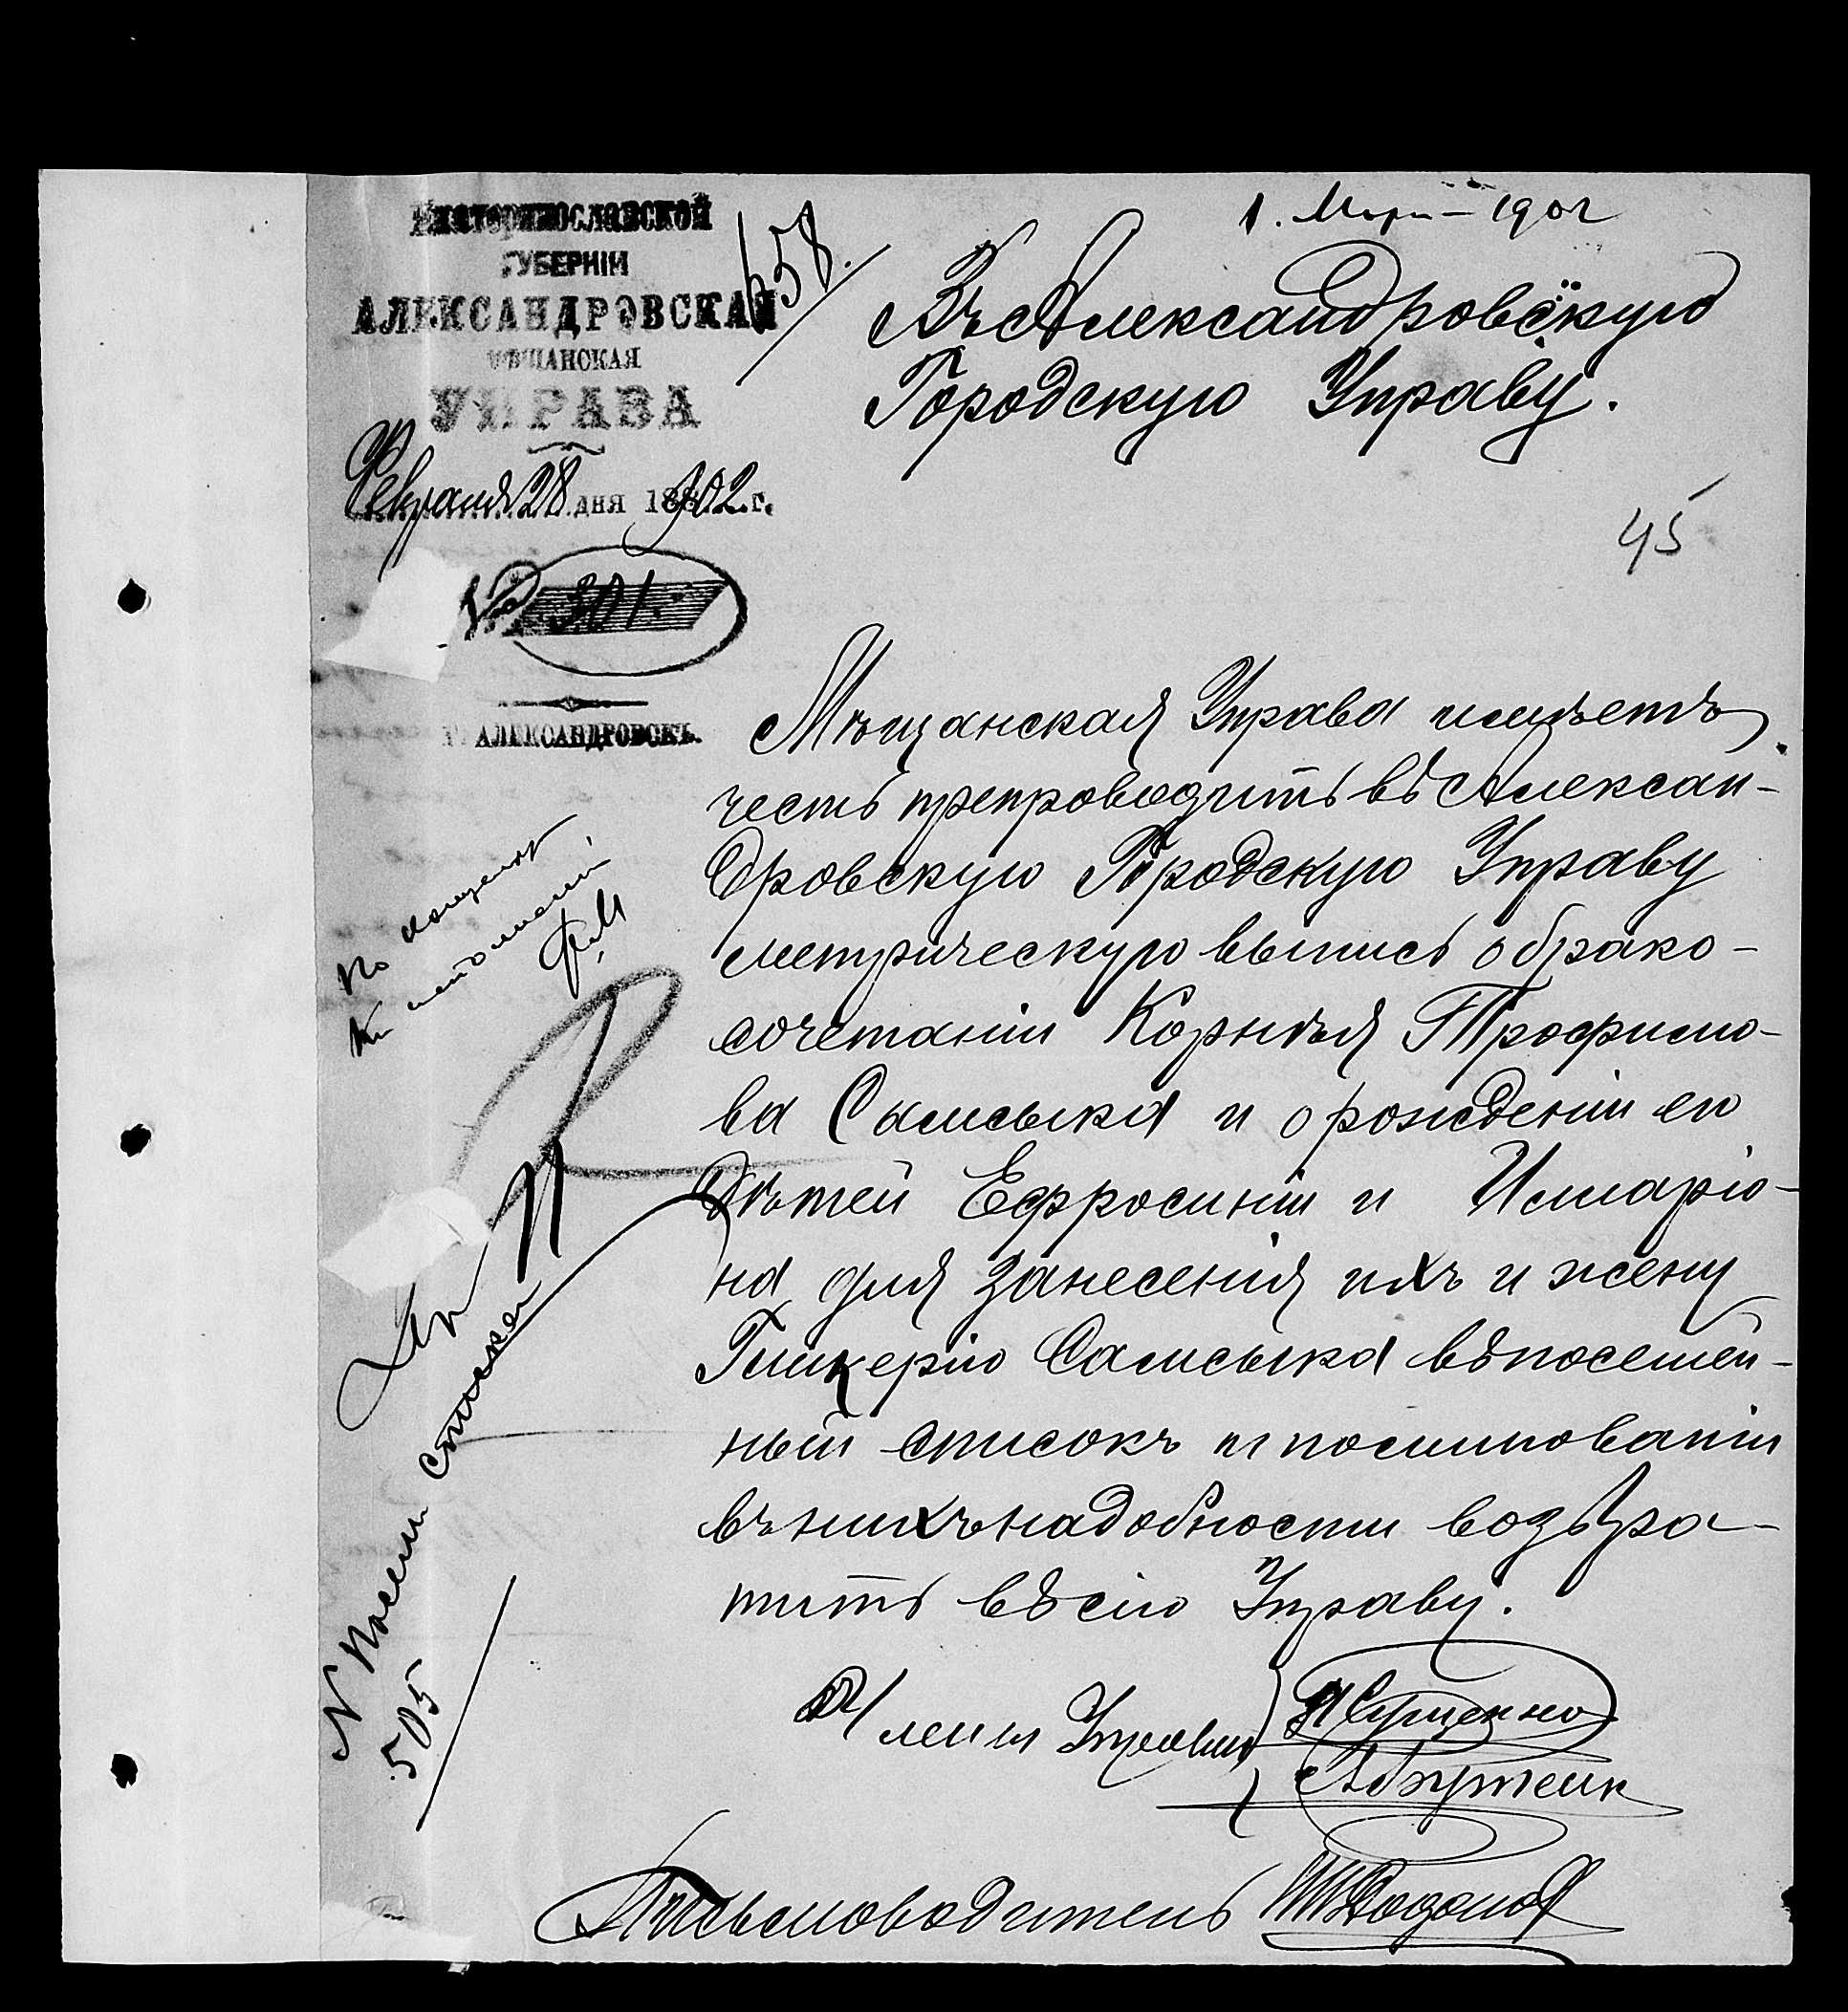 1. Март 1902
658.
Екатеринославской
ГУБЕРНІИ
АЛЕКСАНДРОВСКАЯ
МѢЩАНСКАЯ
УПРАВА
Февраля 28 дня 1902 г.
№ 301.
Г. АЛЕКСАНДРОВСКЪ.
Въ Александровскую
Городскую Управу.
45
Мѣщанская Управа имѣетъ
честь препроводить въ Алексан-
дровскую Городскую Управу
метрическую выпись о брако-
сочетаніи Корнѣя Трофимо-
ва Самсыка и о рожденіи его
дѣтей Ефросиніи и Иларіо-
на для занесенія ихъ и жену
Гликерію Самсыка въ посемей-
ный списокъ и по миновапіи
въ нихъ надобности возвра-
тить въ сію Управу.
Члены Управы
Письмоводитель
№ посем. списка
505